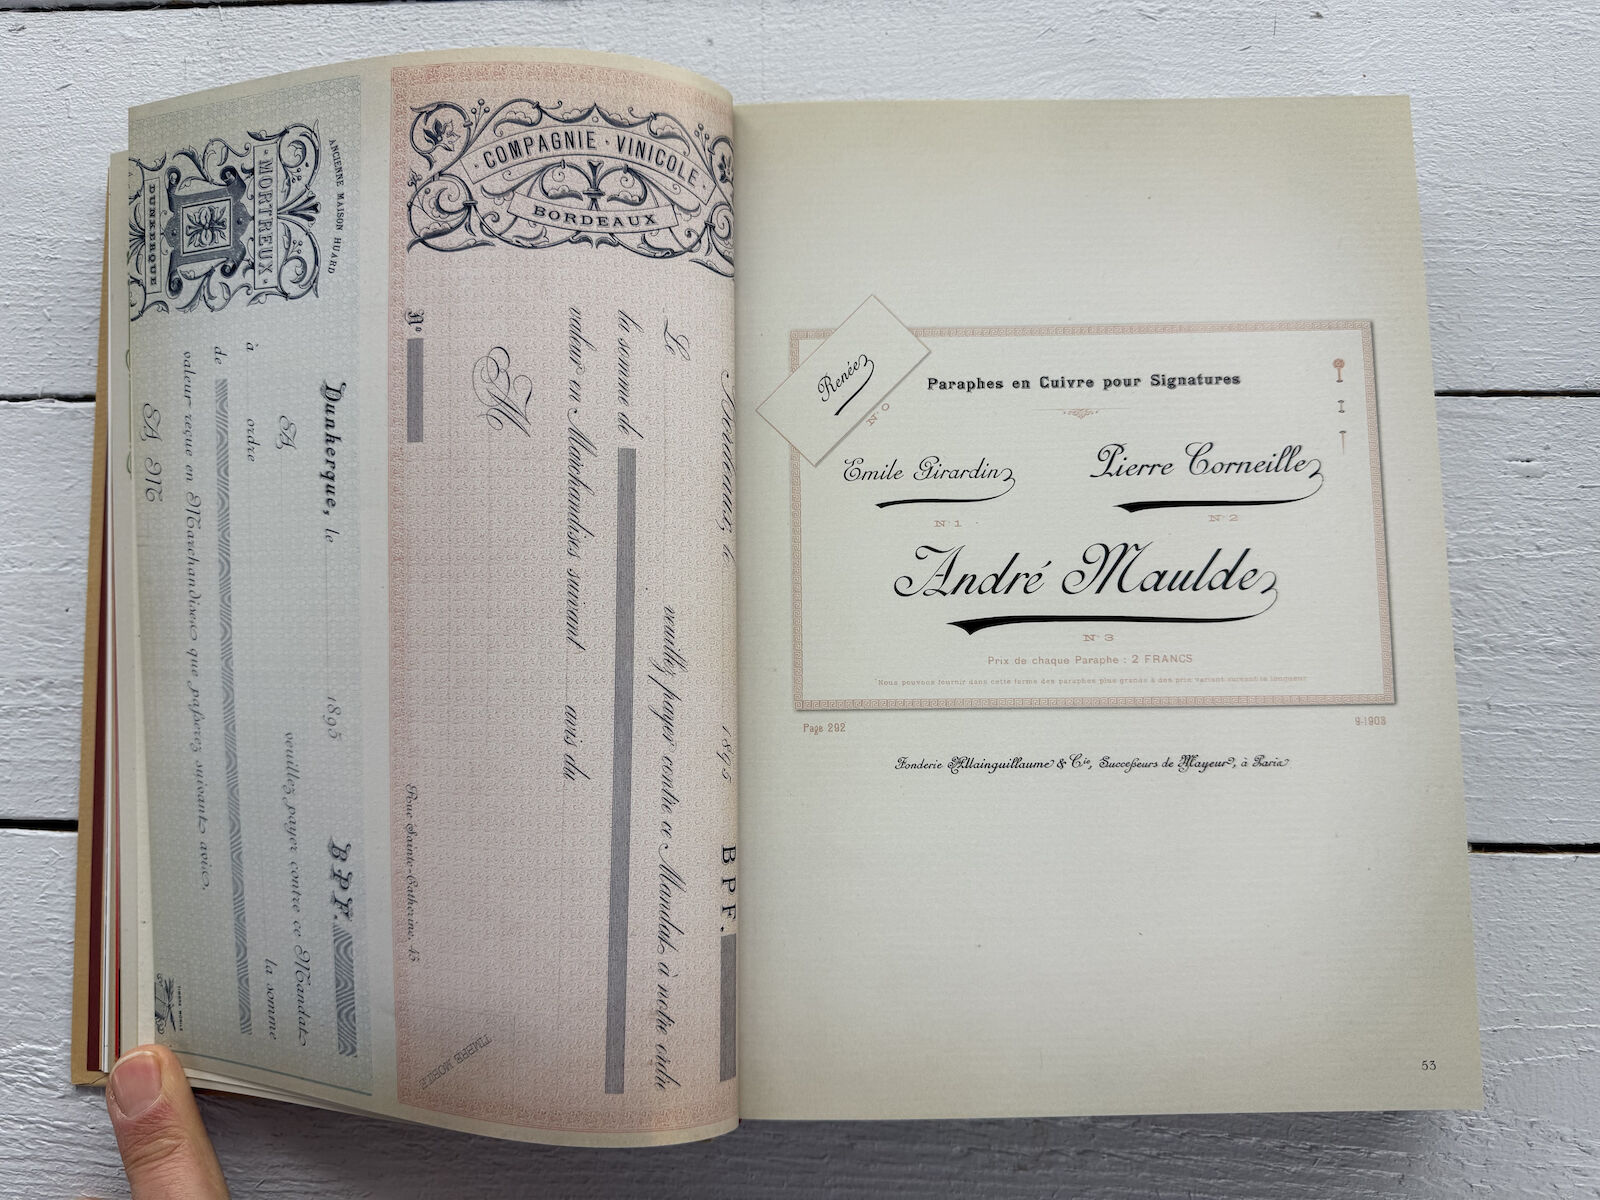 ANCIENNE MAISON HUARD
MORTREUX
DUNKERQUE
Dunkerque, le 1895 B.P.F.
à
ordre
veuillez payer contre ce Mandat
la somme
de
valeur reçue en Marchandises que passerez suivant avis.
A M
TIMBRE MOBILE
COMPAGNIE · VINICOLE
BORDEAUX
Bordeaux, le 1895 B.P.F.
Le veuillez payer contre ce Mandat à notre ordre
la somme de
valeur en Marchandises suivant avis du
M
No
Rue Sainte-Catherine, 45
TIMBRE MOBILE
Renée
No 0
Paraphes en Cuivre pour Signatures
Emile Girardin
No 1
Pierre Corneille
No 2
André Maulde
No 3
Prix de chaque Paraphe : 2 FRANCS
Nous pouvons fournir dans cette forme des paraphes plus grands à des prix variant suivant la longueur
Page 292
9-1903
Fonderie Allainguillaume & Cie, Successeurs de Mayeur, à Paris
53